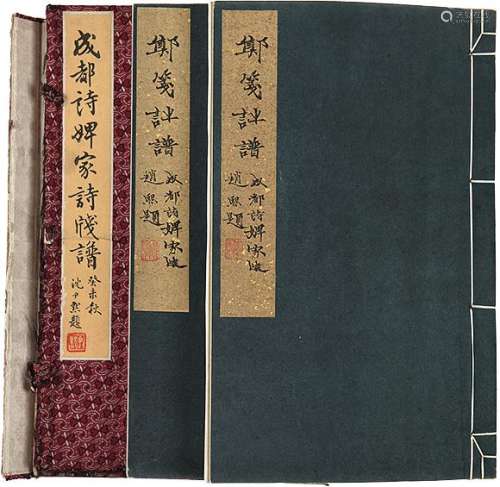 成都詩婢家詩牋譜
癸未秋
沈尹默題
鄭箋詩譜
成都詩婢家造
趙熙題
鄭箋詩譜
成都詩婢家造
趙熙題